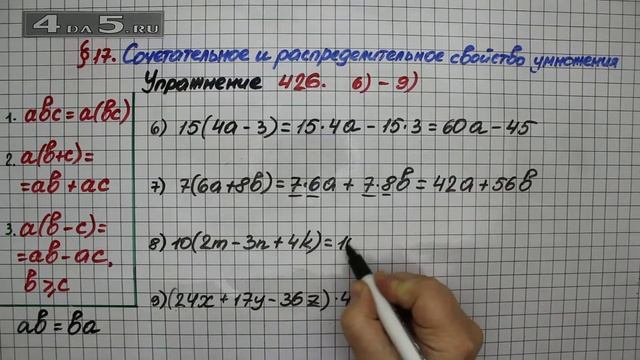 4DA5.RU
§17. Сочетательное и распределительное свойство умножения
Упражнение 426. 6) – 9)
1. abc = a(bc)
2. a(b+c) =
= ab + ac
3. a(b – c) =
= ab – ac,
b ⩾ c
ab = ba
6) 15(4a – 3) = 15·4a – 15·3 = 60a – 45
7) 7(6a + 8b) = 7·6a + 7·8b = 42a + 56b
8) 10(2m – 3n + 4k) = 1
9) (24x + 17y – 36z)·4